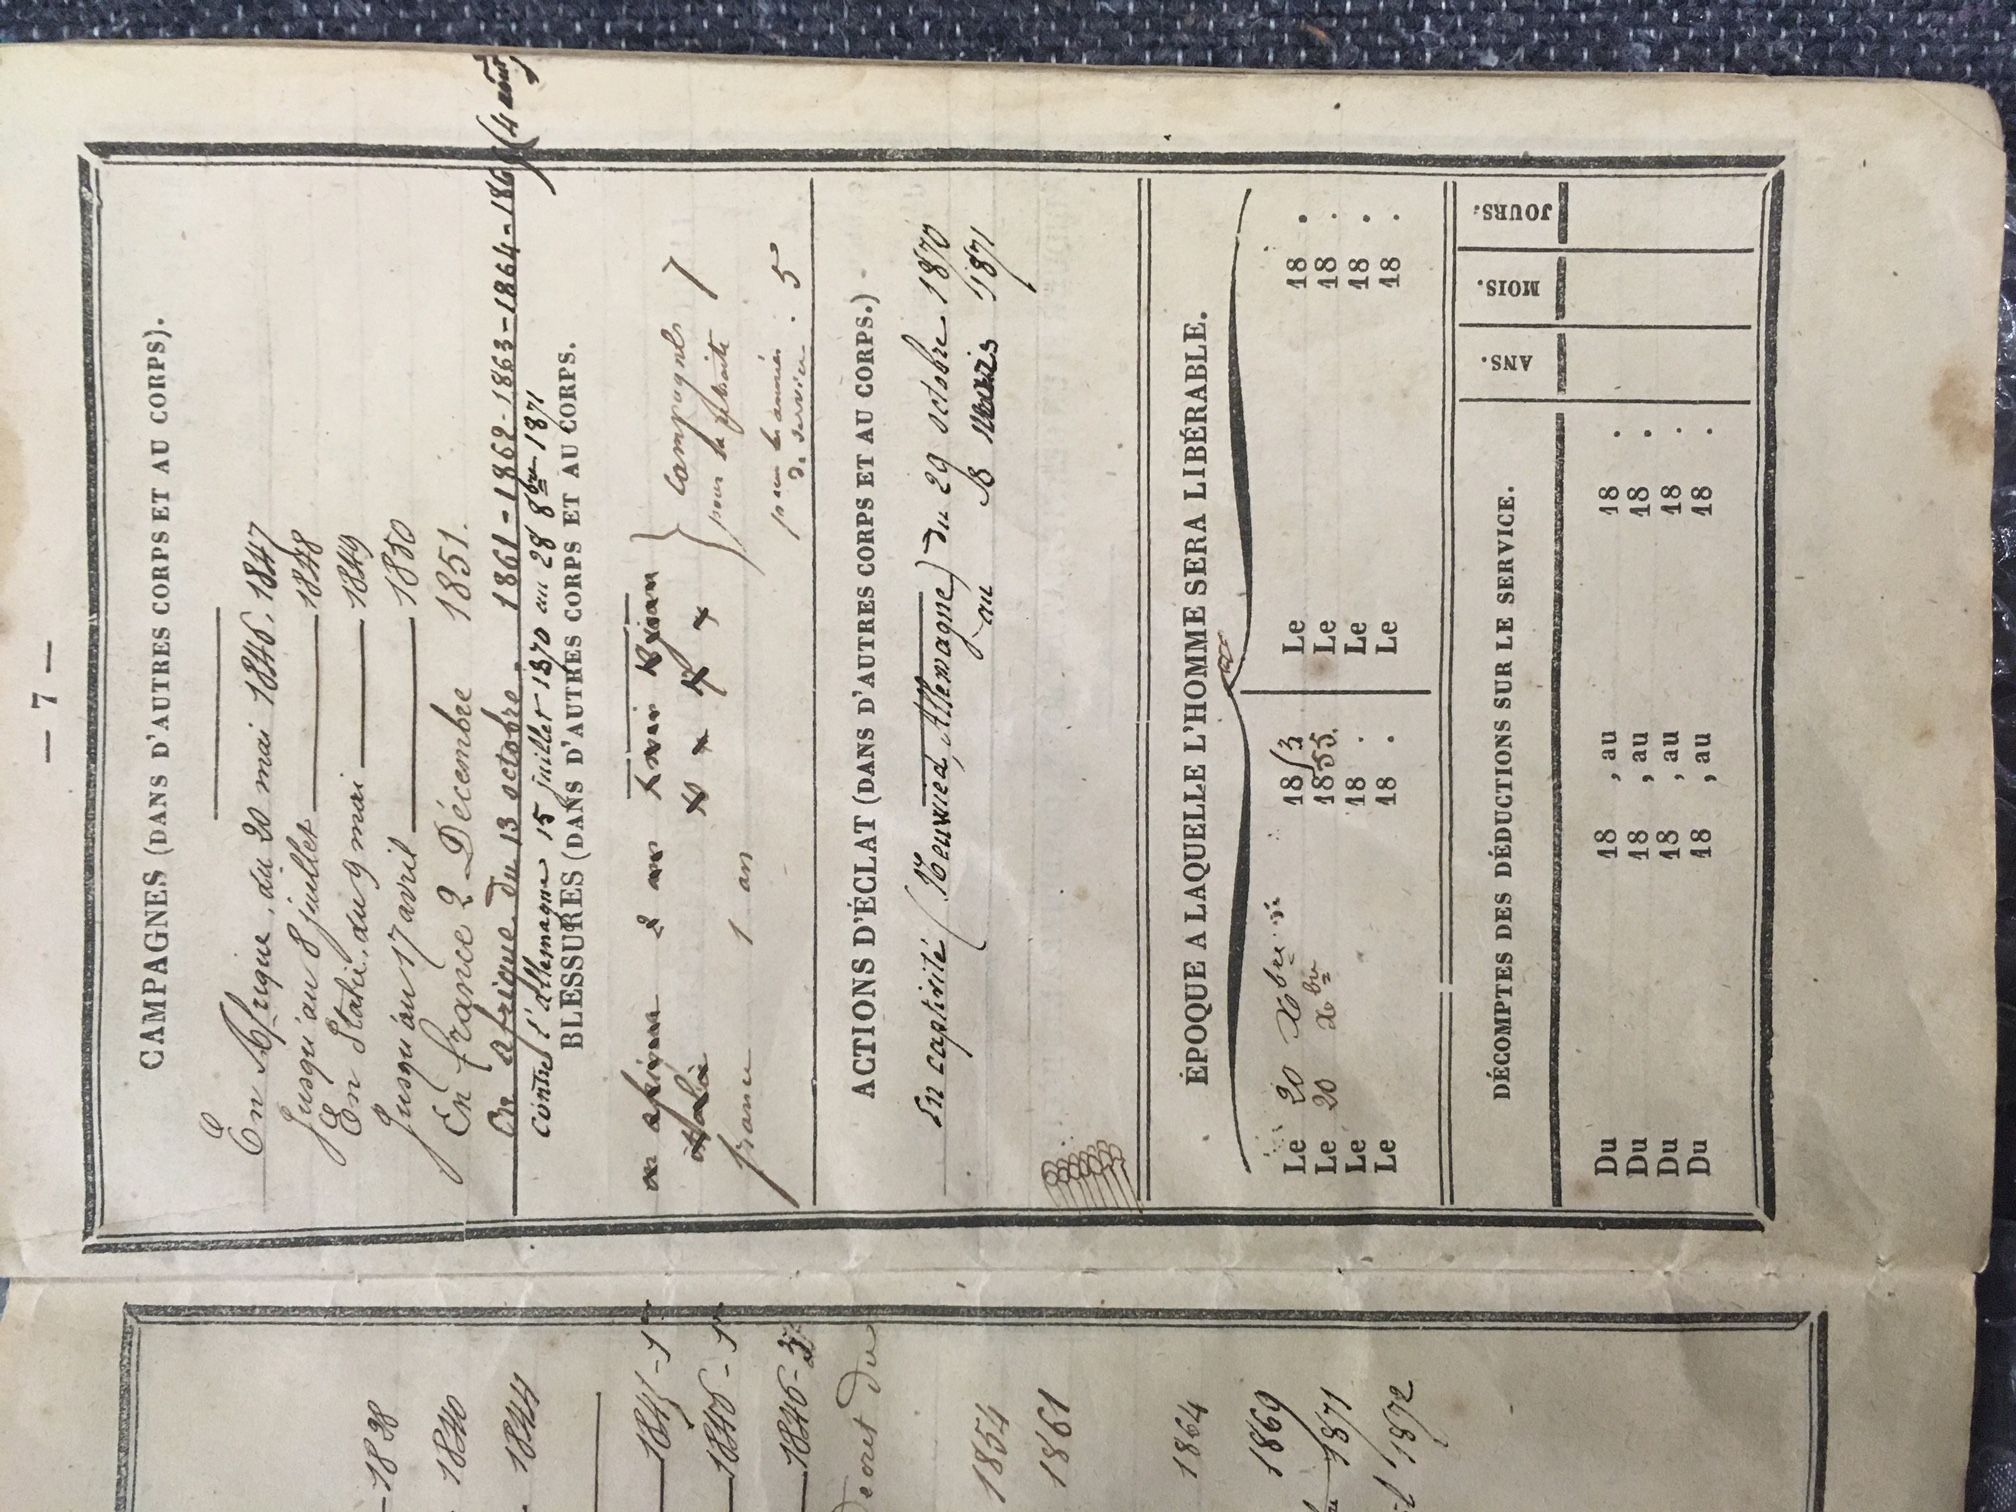 — 7 —
CAMPAGNES (DANS D'AUTRES CORPS ET AU CORPS).
En Afrique, du 20 mai 1846, 1847
Jusqu'au 8 juillet 1848
En Italie, du 9 mai 1849
Jusqu'au 17 avril 1850
En france 2 Décembre 1851.
En afrique du 13 octobre 1861-1862-1863-1864-186
contre l'allemagne 15 juillet 1870 au 28 8bre 1871
BLESSURES (DANS D'AUTRES CORPS ET AU CORPS.
Campagnes
pour la retraite 7
france 1 an
pour les années
de service . 5
ACTIONS D'ÉCLAT (DANS D'AUTRES CORPS ET AU CORPS.)
En captivité (Neuwied, Allemagne) du 29 octobre 1870
au 1871
ÉPOQUE A LAQUELLE L'HOMME SERA LIBÉRABLE.
Le 20 Xbre 18 Le 18 .
Le 20 Xbre 1855. Le 18 .
Le 18 . Le 18 .
Le 18 . Le 18 .
DÉCOMPTES DES DÉDUCTIONS SUR LE SERVICE. ANS. MOIS. JOURS.
Du 18 , au 18 .
Du 18 , au 18 .
Du 18 , au 18 .
Du 18 , au 18 .
1838
1840
1844
1845-1
1846-1
1846-
Décret du
1854
1861
1864
1869
1871
1872